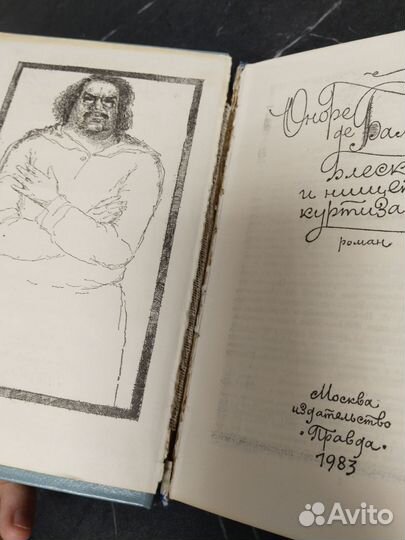 Оноре
де Баль
Блеск
и нищет
куртиза
роман
Москва
издательство
·Правда·
1983
Avito